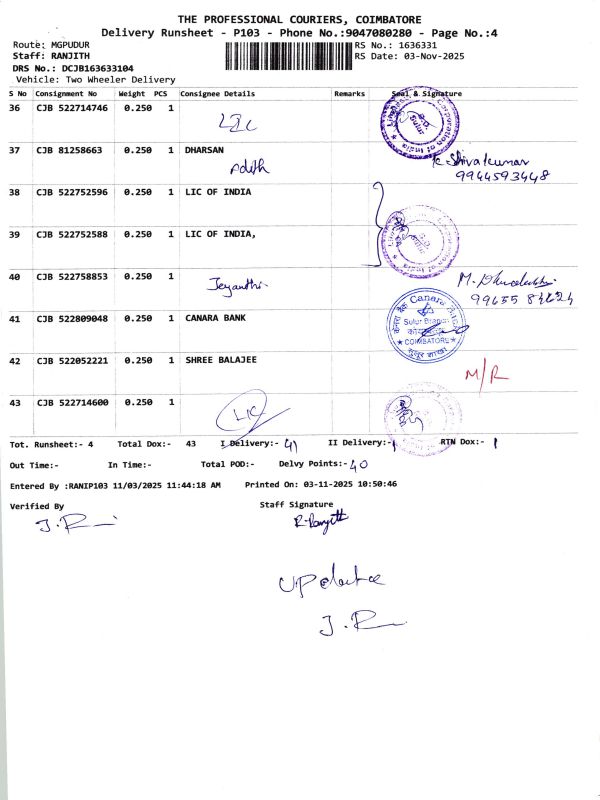 THE PROFESSIONAL COURIERS, COIMBATORE
Delivery Runsheet - P103 - Phone No.:9047080280 - Page No.:4
Route: MGPUDUR
RS No.: 1636331
Staff: RANJITH
RS Date: 03-Nov-2025
DRS No.: DCJB163633104
Vehicle: Two Wheeler Delivery
S No Consignment No Weight PCS Consignee Details Remarks Seal & Signature
36 CJB 522714746 0.250 1 LIC
37 CJB 81258663 0.250 1 DHARSAN
K. Shivakumar
9944593448
38 CJB 522752596 0.250 1 LIC OF INDIA
39 CJB 522752588 0.250 1 LIC OF INDIA,
40 CJB 522758853 0.250 1 Jeyanthi
41 CJB 522809048 0.250 1 CANARA BANK
Canara
Sulur Branch
COIMBATORE
42 CJB 522052221 0.250 1 SHREE BALAJEE M/R
43 CJB 522714600 0.250 1 LIC
Tot. Runsheet:- 4 Total Dox:- 43 I Delivery:- 41 II Delivery:- 1 RTN Dox:- 1
Out Time:- In Time:- Total POD:- Delvy Points:- 40
Entered By :RANIP103 11/03/2025 11:44:18 AM Printed On: 03-11-2025 10:50:46
Verified By Staff Signature